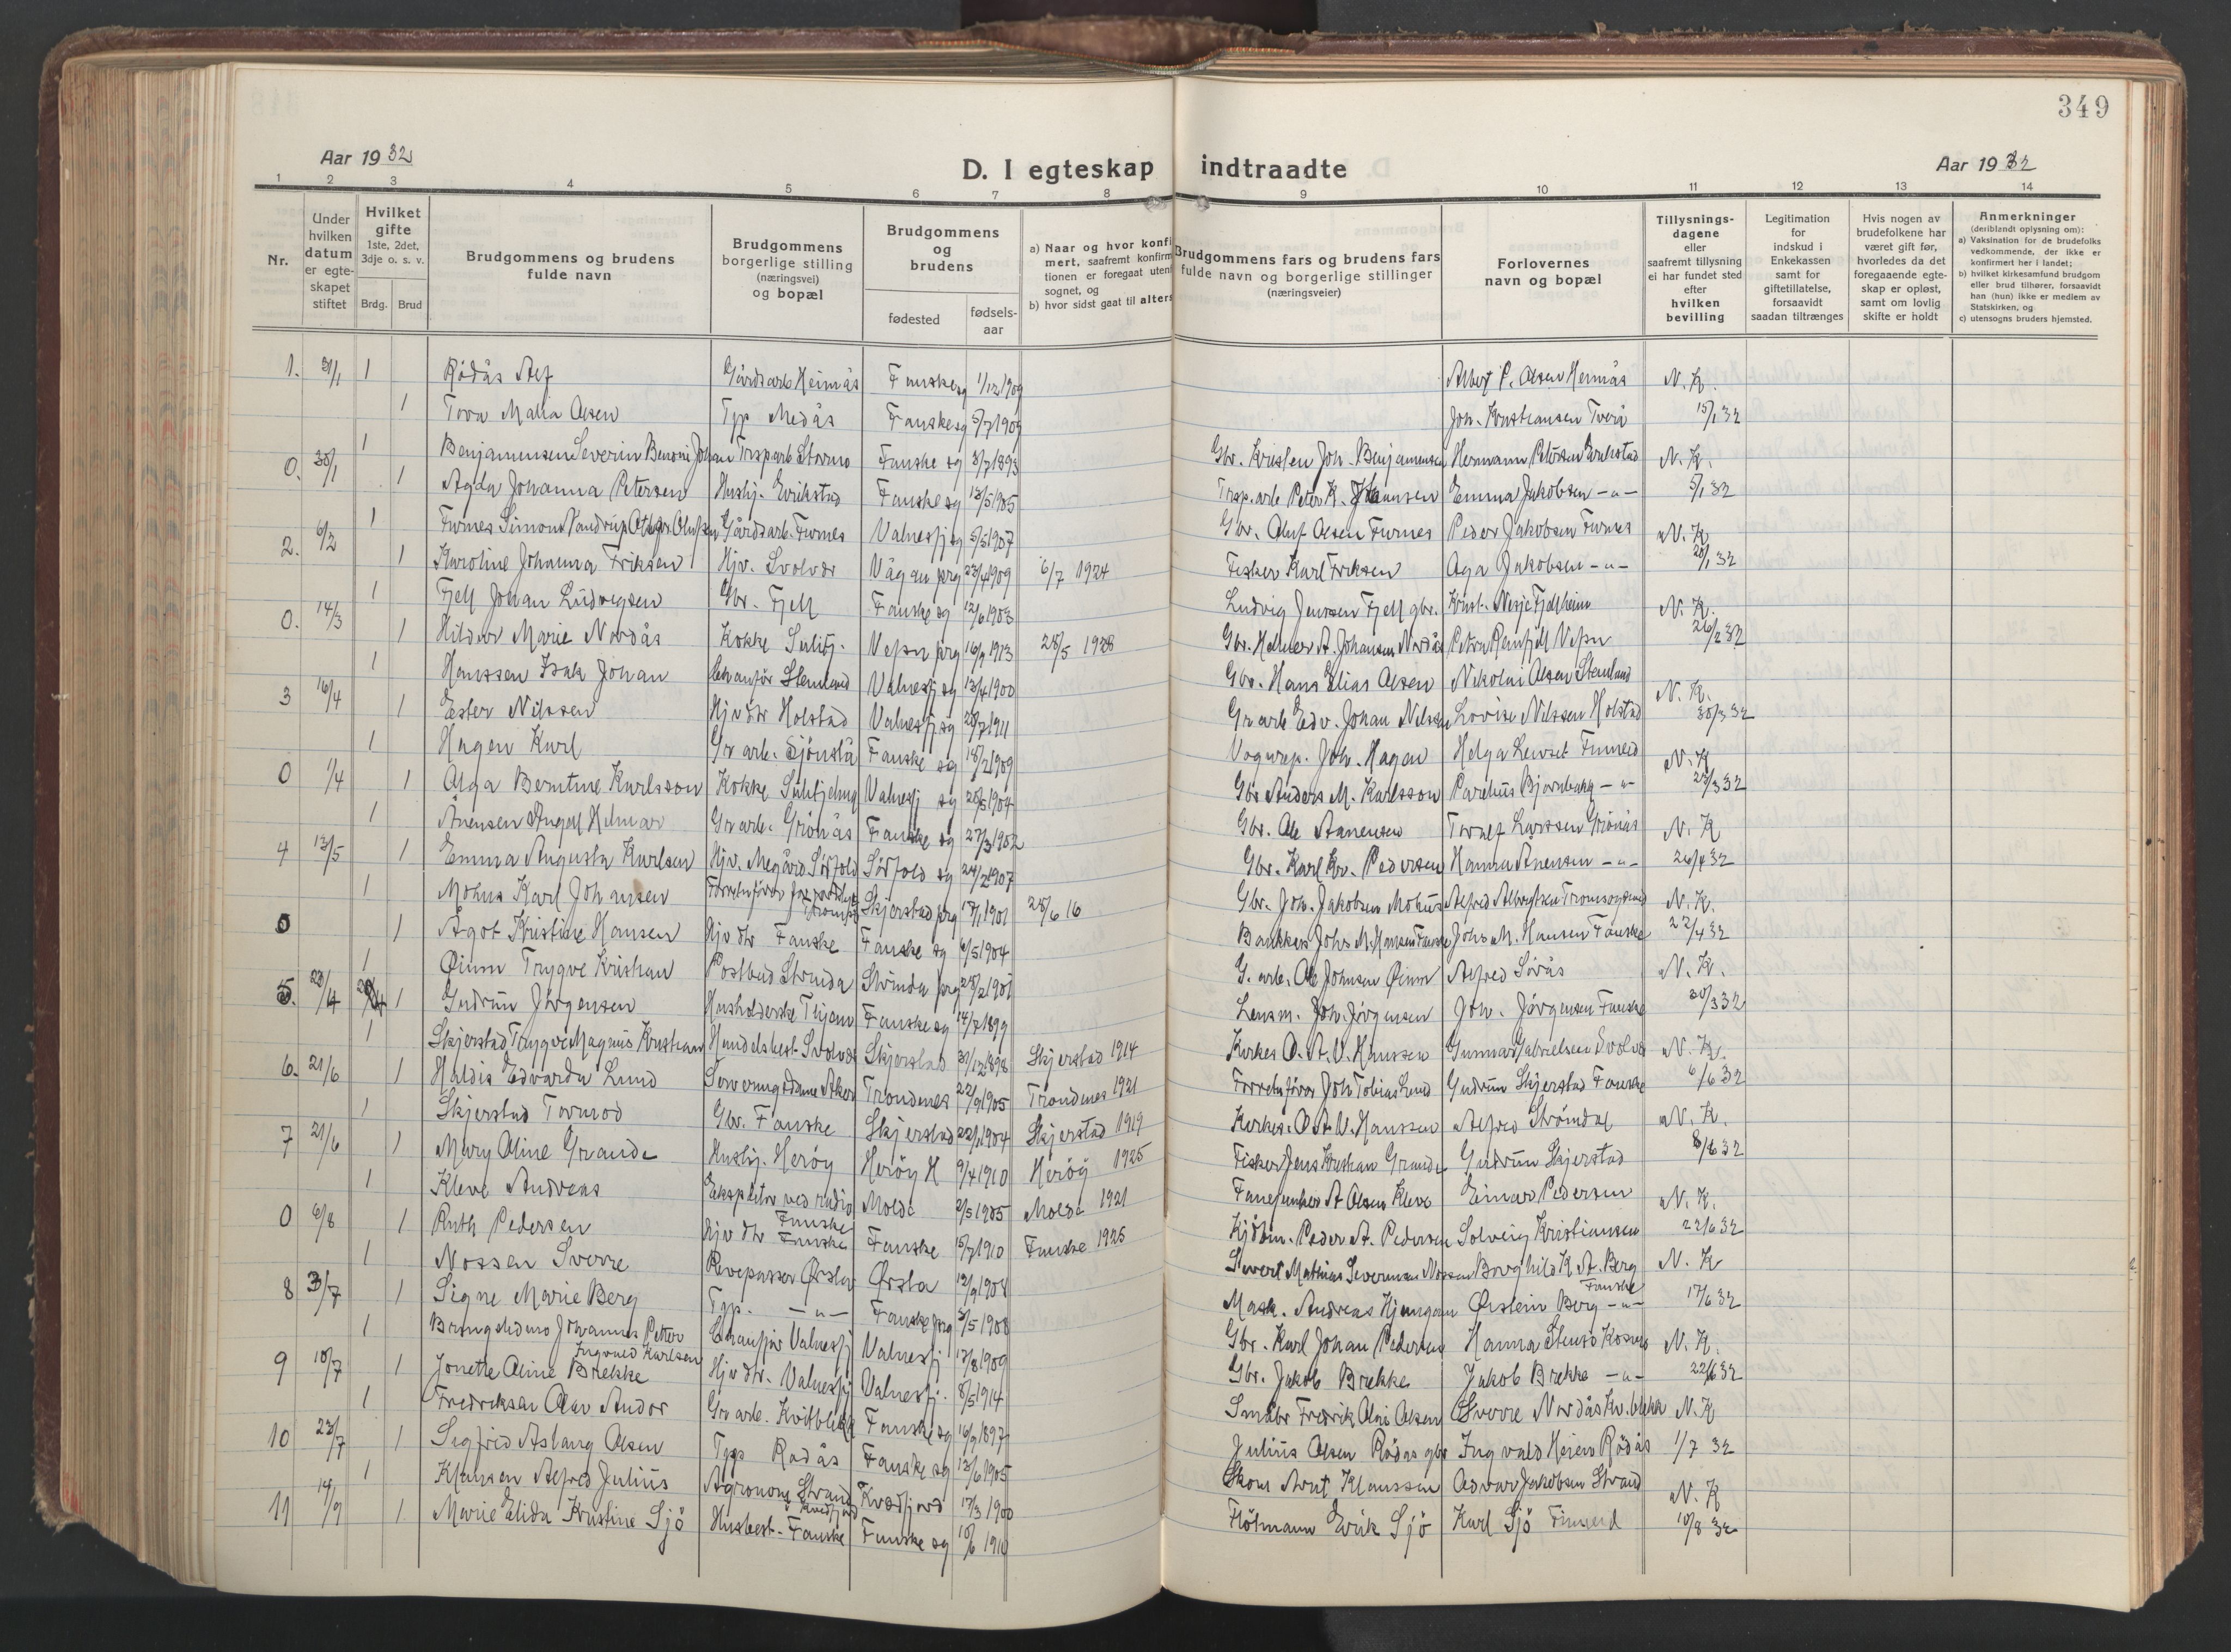 349
Aar 1932
D. I egteskap indtraadte
Aar 1932
1 2 3 4 5 6 7 8 9 10 11 12 13 14
Nr.
Under hvilken datum er egte-skapet stiftet
Hvilket gifte 1ste, 2det, 3dje o. s. v.
Brdg. Brud
Brudgommens og brudens fulde navn
Brudgommens borgerlige stilling (næringsvei) og bopæl
Brudgommens og brudens
fødested
fødsels-aar
a) Naar og hvor konfi
mert, saafremt konfirm
tionen er foregaat uten
sognet, og
b) hvor sidst gaat til alters
Brudgommens fars og brudens fars
fulde navn og borgerlige stillinger
(næringsveier)
Forlovernes
navn og bopæl
Tillysnings-
dagene
eller
saafremt tillysning
ei har fundet sted
efter
hvilken
bevilling
Legitimation
for
indskud i
Enkekassen
samt for
giftetillatelse,
forsaavidt
saadan tiltrænges
Hvis nogen av
brudefolkene har
været gift før,
hvorledes da det
foregaaende egte-
skap er opløst,
samt om lovlig
skifte er holdt
Anmerkninger
(deriblandt oplysning om):
a) Vaksination for de brudefolks
vedkommende, der ikke er
konfirmert her i landet;
b) hvilket kirkesamfund brudgom
eller brud tilhører, forsaavidt
han (hun) ikke er medlem av
Statskirken, og
c) utensogns bruders hjemsted.
1. 1 Rødås Alf Gårdsarb Heimås Fauske sg 1/12 1909 Albert P. Olsen N. K.
1 Tora Malia Olsen Tjp Medås Fauske sg 5/7 1909 Joh. Kristiansen Tverå 15/1 32
1 Benjaminsen Severin Benoni Johan Trsp arb Stormo Fauske sg 3/7 1893 Gbr. Kristen Joh. Benjaminsen Hermann Petersen Erikstad N. K.
0. 30/1 1 Agda Johanna Petersen Husbj. Erikstad Fauske sg 13/5 1905 Trsp. arb Peter K. Emma Jakobsen -"- 5/1 32
1 Furnes Simon Gårdsarb. Furnes Valnesfj sg 5/5 1907 Gbr. Oluf Olsen Furnes Peder Jakobsen Furnes N. K.
2. 6/2 1 Karoline Johanna Eriksen Hjv. Svolvær Vågan prg 23/4 1909 6/7 1924 Fisker Karl Eriksen Aga Jakobsen -"- 20/1 32
1 Fjell Johan Ludvigsen Gbr. Fjell Fauske sg 12/6 1903 Ludvig Jenssen Fjell gbr. Krist. Nesje Fjellheim N. K.
0. 14/3 1 Hildur Marie Nordås Kokke Sulitj. Vefsn prg 16/9 1913 28/5 1928 Gbr. Helmer A. Johansen Nordås Petra Reinfjell Vefsn 26/2 32
1 Hanssen Isak Johan Chauffør Stemland Valnesfj sg 13/4 1900 Gbr. Hans Elias Olsen Nikolai Olsen Stemland N. K.
3 16/4 1 Ester Nilssen Hjv dtr Holstad Valnesfj sg 28/7 1911 Gruarb Edv. Johan Nilssen Lovise Nilssen Holstad 30/3 32
1 Hagen Karl Gr arb. Sjønstå Fauske sg 18/2 1909 Vognrep. Joh. Hagen Helga Finneid N. K
0 1/4 1 Olga Berntine Karlsson Kokke Sulitjelma Valnesfj sg 28/5 1904 Gbr Anders M. Karlsson Parelius Bjørnbakk -"- 23/3 32
1 Ånensen Ingolf Hilmar Gr arb. Grønås Fauske sg 27/3 1902 Gbr. Ole Aanensen Toralf Larssen Grønås N. K
4 13/5 1 Emma Augusta Karlsen Hjv. Megård Sørfold Sørfold sg 24/2 1907 Gbr. Karl Kr. Pedersen Hanna Ånensen -"- 26/4 32
1 Mohus Karl Johansen Skjerstad prg 17/1 1901 28/6 16 Gbr. Joh. Jakobsen Mohus N. K.
0 1 Ågot Kristine Hansen Hjv dtr Fauske Fauske sg 6/5 1904 Johs M. Hansen Fauske Johs M. Hansen Fauske 22/4 32
1 Øium Trygve Kristian Postbud Strinda Strinda prg 28/2 1901 G. arb. Ole Johnsen Øium Alfred Sivås N. K.
5. 23/4 1 Gudrun Jørgensen Husholderske Fauske sg 14/7 1899 Lensm. Joh. Jørgensen Joh. Jørgensen Fauske 30/3 32
1 Skjerstad Trygve Magnus Kristian Handelsbest. Svolvær Skjerstad 30/12 1898 Skjerstad 1914 Kirkes O. A. V. Hanssen Gunnar Gabrielsen Svolvær N. K.
6. 21/6 1 Haldis Edvarda Lund Serveringsdame Aker Trondenes 22/9 1905 Trondenes 1921 Forretnfører Joh Tobias Lund Gudrun Skjerstad Fauske 6/6 32
1 Skjerstad Tormod Gbr. Fauske Skjerstad 22/1 1904 Skjerstad 1919 Kirkes. O. A. V. Hanssen Alfred Strömdal N. K.
7 21/6 1 Mary Aline Grande Husbj. Herøy Herøy H 9/4 1910 Herøy 1925 Fisker Jens Kristian Grande Gudrun Skjerstad 8/6 32
1 Kleve Andreas Ekspeditør ved radio Fauske Molde 2/5 1905 Molde 1921 Fanejunker A Olsen Kleve Einar Pedersen N. K.
0 6/8 1 Ruth Pedersen Hjv dtr Fauske Fauske 15/7 1910 Fauske 1925 Kjøbm. Peder A. Pedersen Solveig Kristiansen 22/6 32
1 Nossen Sverre Revepasser Ørsta Ørsta 12/9 1908 Sivert Mathias Severinsen Nossen Borghild K. A. Berg Fauske N. K
8 3/7 1 Signe Marie Berg Tjp. -"- Fauske prg 3/5 1908 Mask. Andreas Øistein Berg -"- 17/6 32
1 Bringslidmo Johannes Petter Ingvald Karlsen Chauffør Valnesfj Valnesfj 13/8 1909 Gbr. Karl Johan Pedersen Hanna N. K.
9 10/7 1 Jonette Oline Brekke Hjv dtr. Valnesfj Valnesfj. 8/5 1914 Gbr. Jakob Brekke Jakob Brekke -"- 22/6 32
1 Fredriksen Olav Andor Gr arb. Kvitblikk Fauske sg 16/9 1897 Småbr Fredrik Olai Olsen Sverre Nordås Kv. blikk N. K
10 23/7 1 Sigfrid Aslaug Olsen Tjp Rødås Fauske sg 13/6 1905 Julius Olsen Rödås gbr Ingvald Heien Rödås 1/7 32
1 Klaussen Alfred Julius Agronom Strand Kvedfjord Kvedfjord 17/3 1900 Skom Arnt Klaussen Edvar Jakobsen Strand N. K
11 14/9 1 Marie Elida Kristine Sjö Husbest. Fauske Fauske sg 10/6 1910 Flötmann Erik Sjö Karl Sjö Finneid 10/8 32